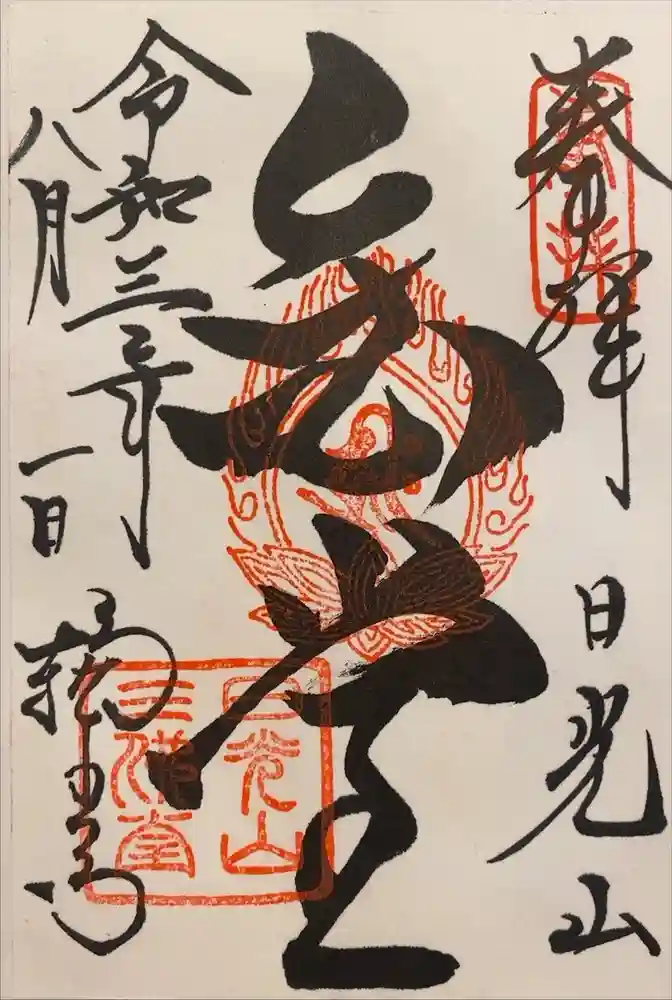 奉拝
日光山
金堂
令和三年
八月一日
輪王寺
日光山
三佛堂